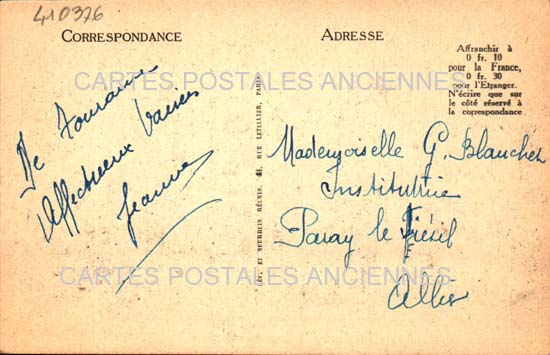 410376
CORRESPONDANCE
ADRESSE
Affranchir à
0 fr. 10
pour la France,
0 fr. 30
pour l'Etranger.
N'écrire que sur
le côté réservé à
la correspondance
CARTES POSTALES ANCIENNES
De Touraine
Affectueux Baisers
Jeanne
LÉV. ET NEURDEIN RÉUNIS, 44, RUE LETELLIER, PARIS
Mademoiselle G. Blanchet
Institutrice
Paray le Frésil
Allier
CARTES POSTALES ANCIENNES